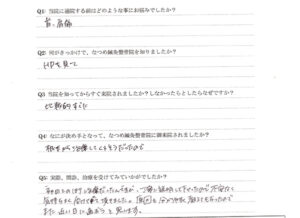 Q1: 当院に通院する前はどのような事にお悩みでしたか？
首、肩痛
Q2: 何がきっかけで、なつめ鍼灸整骨院を知りましたか？
HPを見て
Q3: 当院を知ってからすぐ来院されましたか？しなかったとしたらなぜですか？
比較的すぐに
Q4: なにが決め手となって、なつめ鍼灸整骨院に御来院されましたか？
根本から治療してくれそうだったので
Q5: 実際、問診、治療を受けてみていかがでしたか？
初めての治療だったんですが、丁寧に説明して下さったので不安なく
気持ちよく受けて頂きました。
また近い日に
と思います。